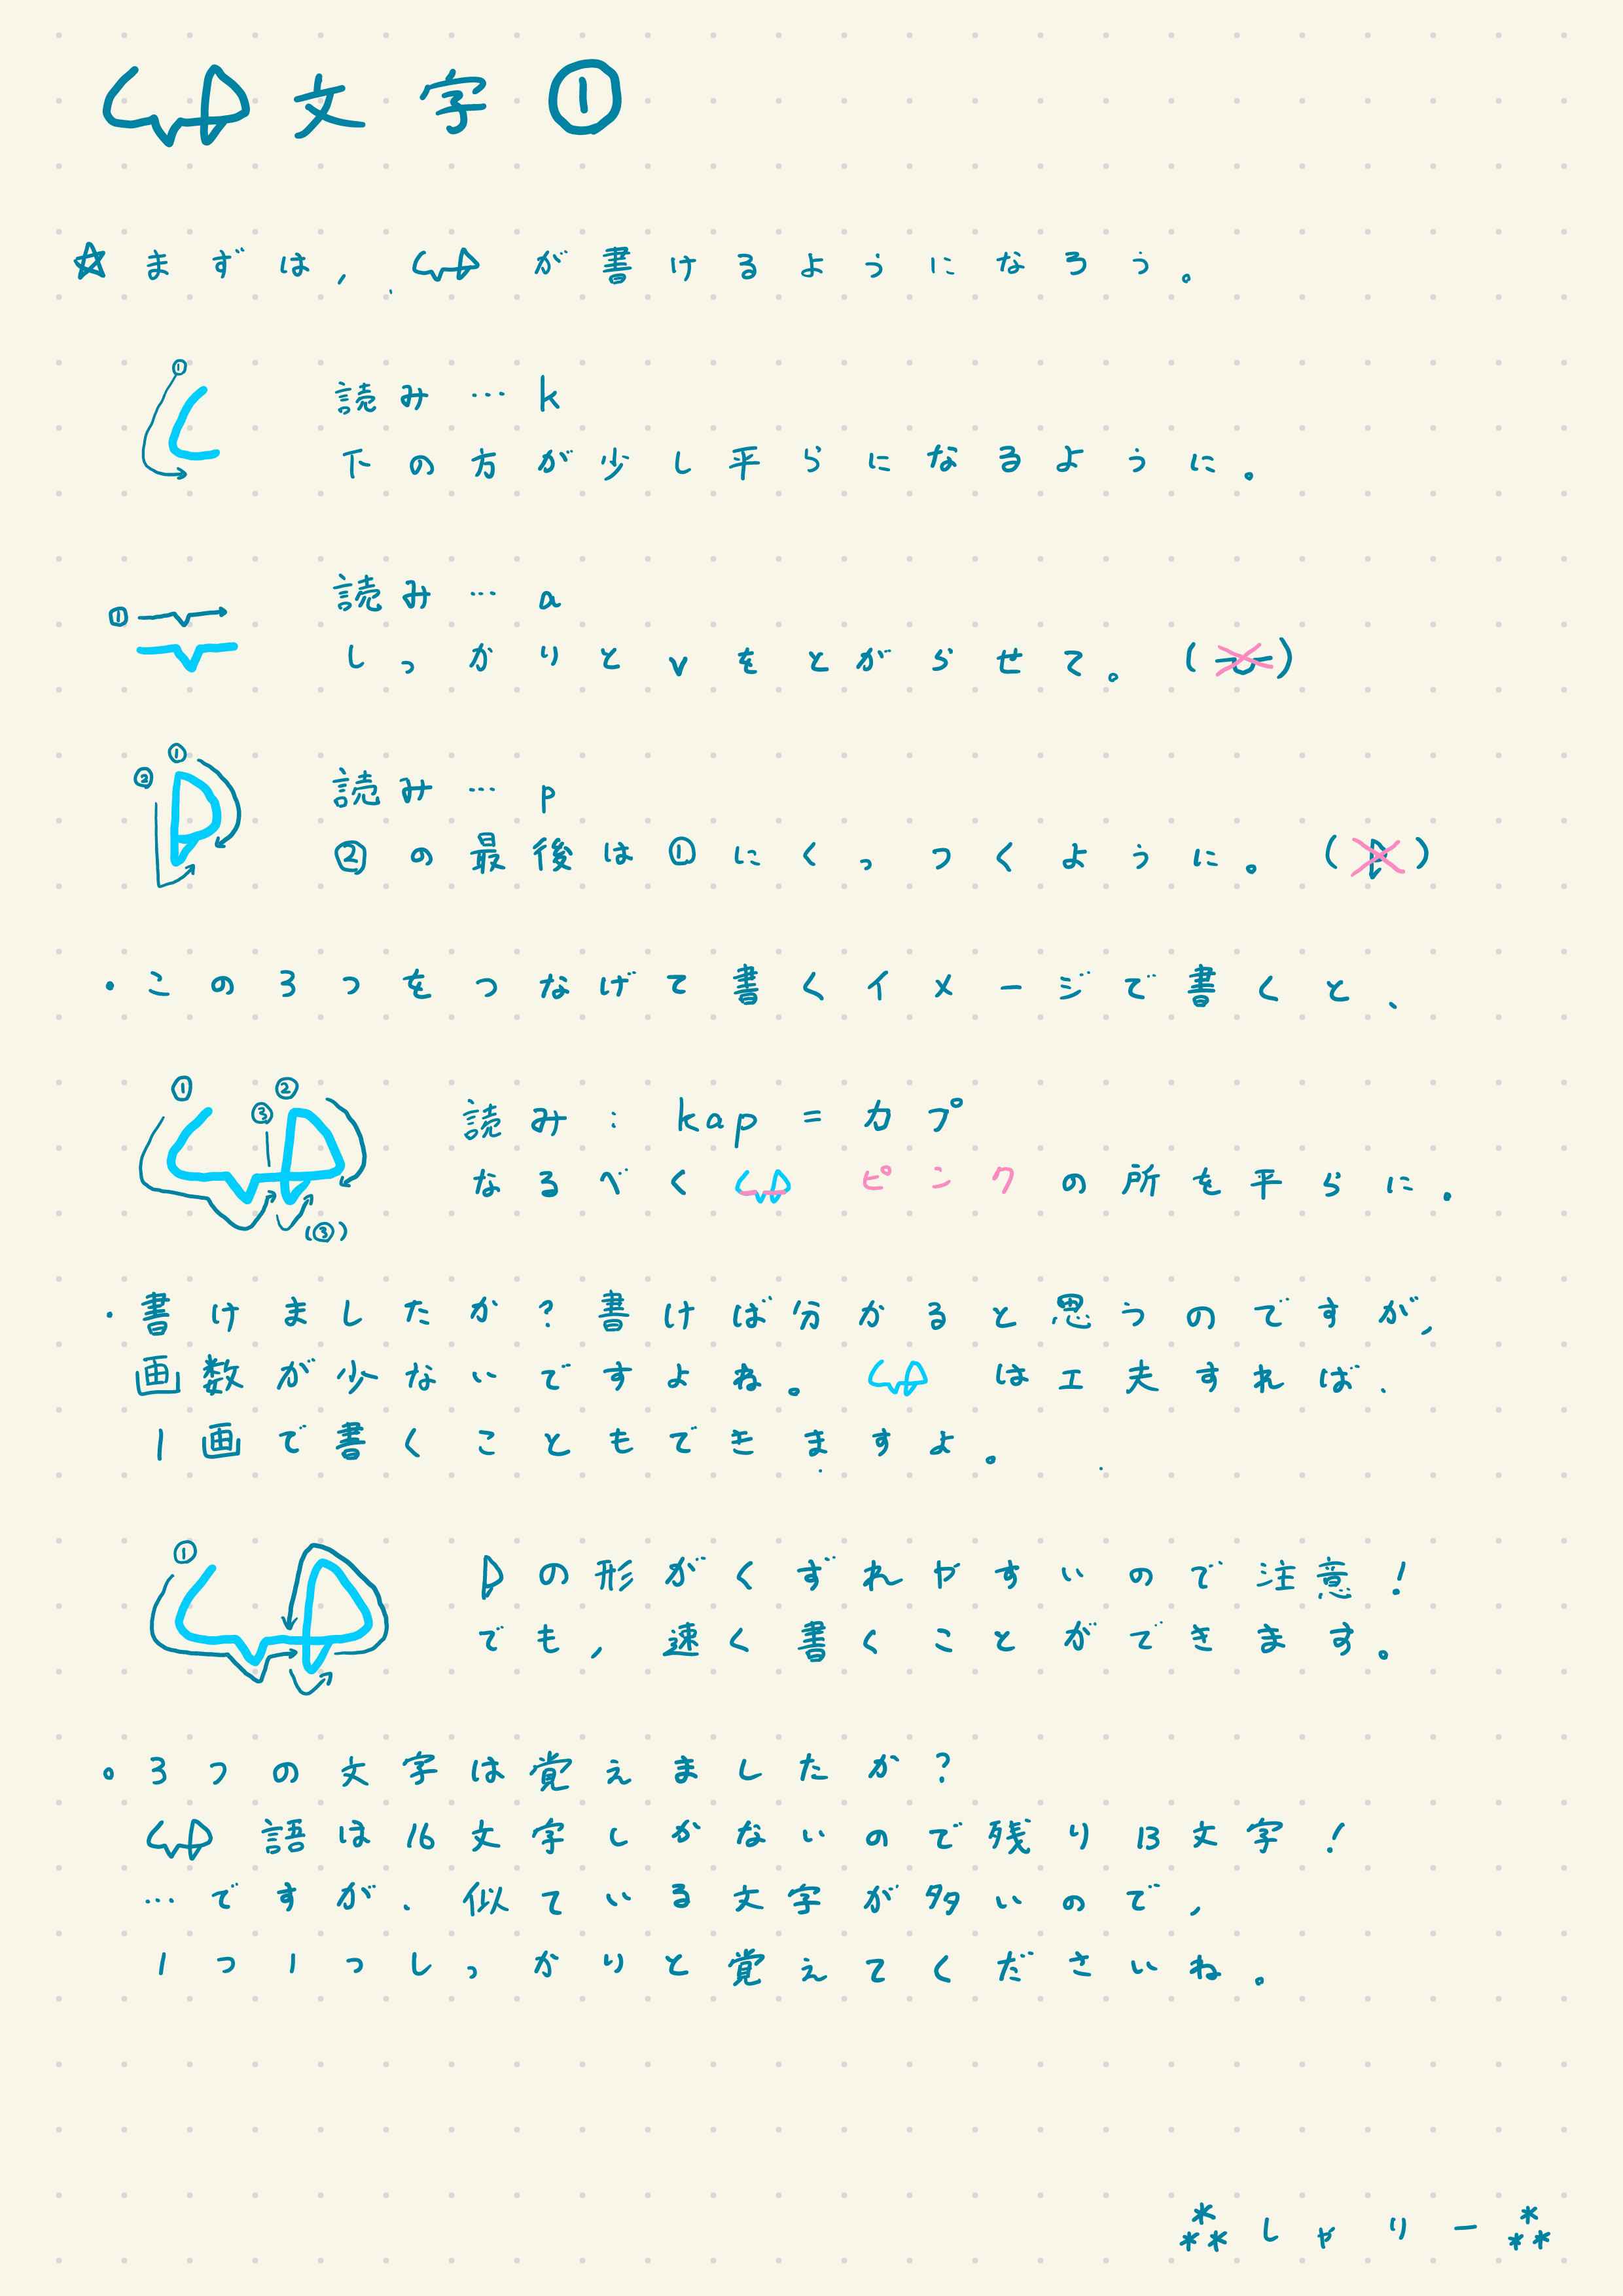 文字①
☆まずは, が書けるようになろう。
①
読み…k
下の方が少し平らになるように。
読み…a
①
しっかりとvをとがらせて。( )
①
②
読み…p
②の最後は①にくっつくように。( )
・この3つをつなげて書くイメージで書くと、
① ②
③
読み: kap = カプ
なるべく ピンクの所を平らに.
(③)
・書けましたか?書けば分かると思うのですが,
画数が少ないですよね。 は工夫すれば、
1画で書くこともできますよ。
①
の形がくずれやすいので注意!
でも,速く書くことができます。
・3つの文字は覚えましたか?
語は16文字しかないので残り13文字!
…ですが、似ている文字が多いので,
1つ1つしっかりと覚えてくださいね。
***しゃりー***